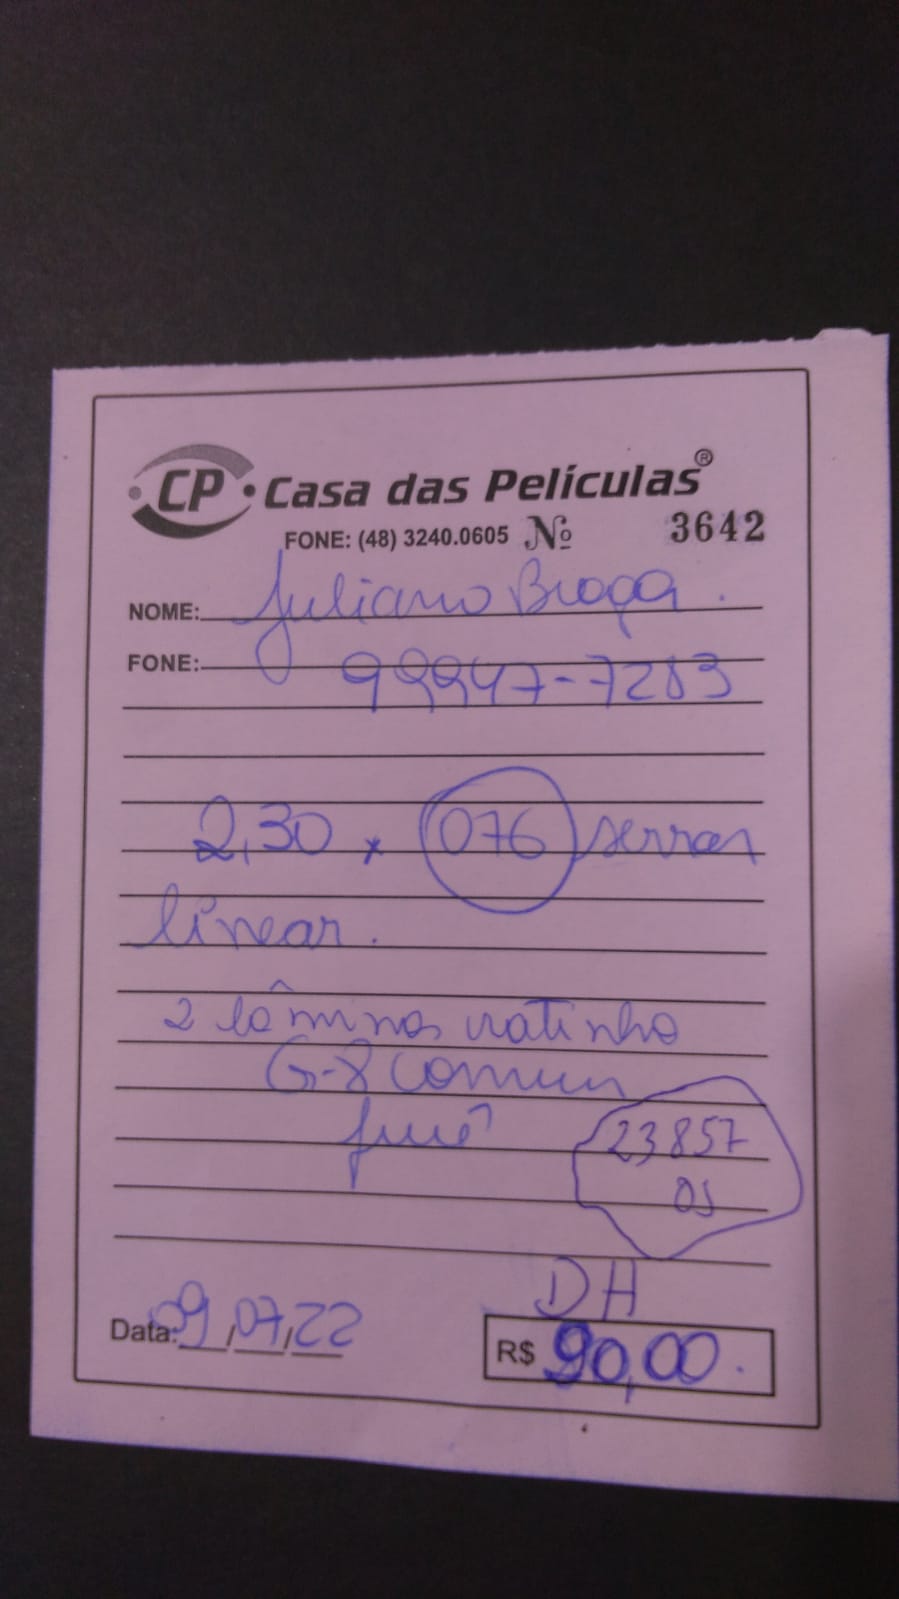 CP Casa das Películas®
FONE: (48) 3240.0605 Nº 3642
NOME: Juliano Braga.
FONE: 99947-7283
2,30 x 076 serras
linear.
2 lâminas ratinho
G-8 comum
23857
OS
DH
Data: 09/07/22
R$ 90,00.